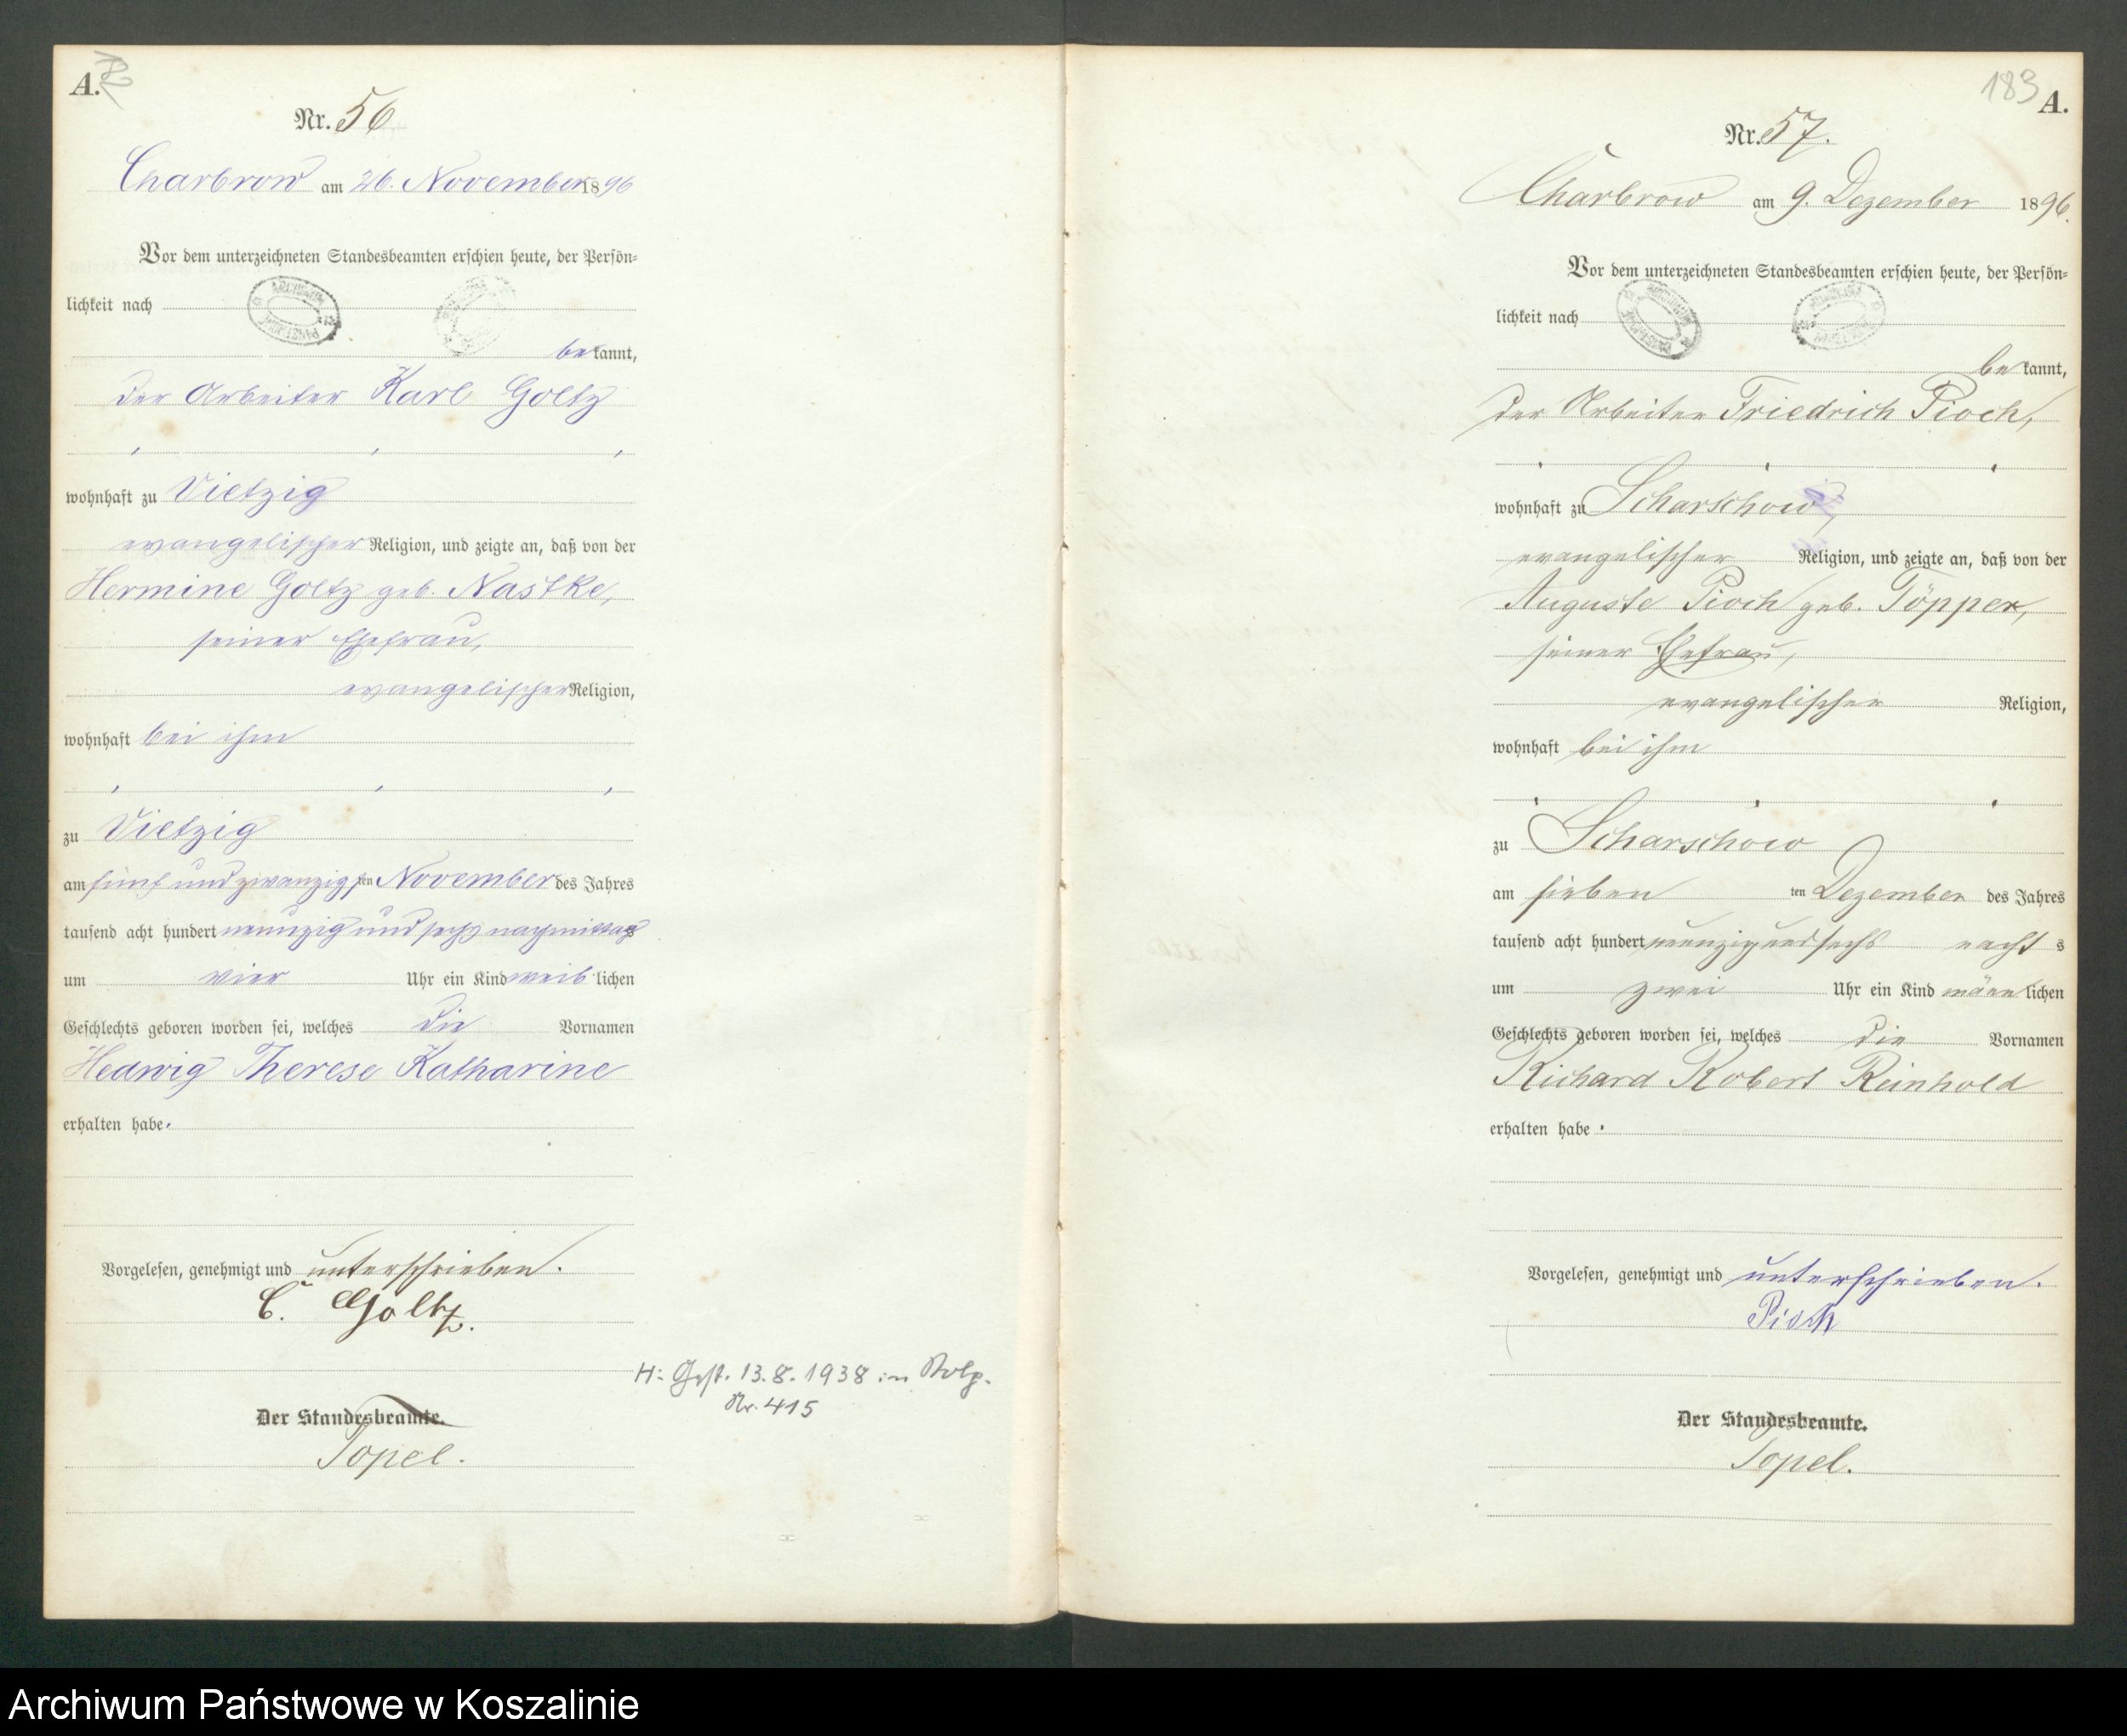 A.
Nr. 56
Charbrow am 26. November 1896
Vor dem unterzeichneten Standesbeamten erschien heute, der Persön-
lichkeit nach
bekannt,
der Arbeiter Karl Goltz
wohnhaft zu Vietzig
evangelischer Religion, und zeigte an, daß von der
Hermine Goltz geb. Nastke,
seiner Ehefrau,
evangelischer Religion,
wohnhaft bei ihm
zu Vietzig
am fünf und zwanzigsten November des Jahres
tausend acht hundert neunzig und sechs nachmittags
um vier Uhr ein Kind weiblichen
Geschlechts geboren worden sei, welches die Vornamen
Hedwig Therese Katharine
erhalten habe.
Vorgelesen, genehmigt und unterschrieben.
C. Goltz.
H: Gest. 13.8.1938 in Stolp.
Nr. 415
Der Standesbeamte.
Topel.
183 A.
Nr. 57.
Charbrow am 9. Dezember 1896.
Vor dem unterzeichneten Standesbeamten erschien heute, der Persön-
lichkeit nach
bekannt,
der Arbeiter Friedrich Pioch,
wohnhaft zu Scharschow,
evangelischer Religion, und zeigte an, daß von der
Auguste Pioch geb. Töpper,
seiner Ehefrau,
evangelischer Religion,
wohnhaft bei ihm
zu Scharschow
am siebenten Dezember des Jahres
tausend acht hundert neunzig und sechs nachts
um zwei Uhr ein Kind männlichen
Geschlechts geboren worden sei, welches die Vornamen
Richard Robert Reinhold
erhalten habe.
Vorgelesen, genehmigt und unterschrieben.
Pioch
Der Standesbeamte.
Topel.
Archiwum Państwowe w Koszalinie